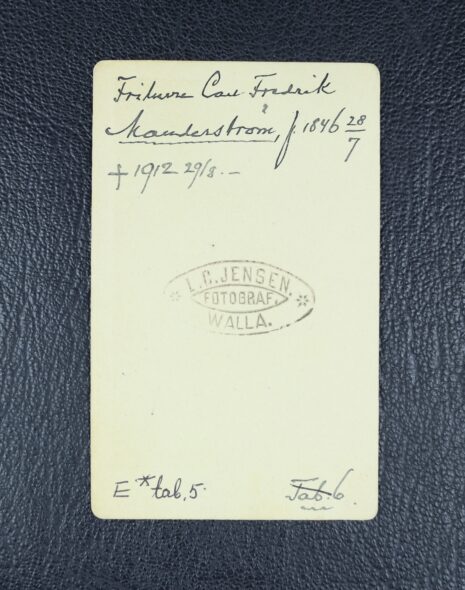 Friherre Carl Fredrik
Manderström, f. 1846 28/7
† 1912 29/3. –
L. C. JENSEN.
FOTOGRAF.
WALLA.
E * tab. 5.
Tab. 6.